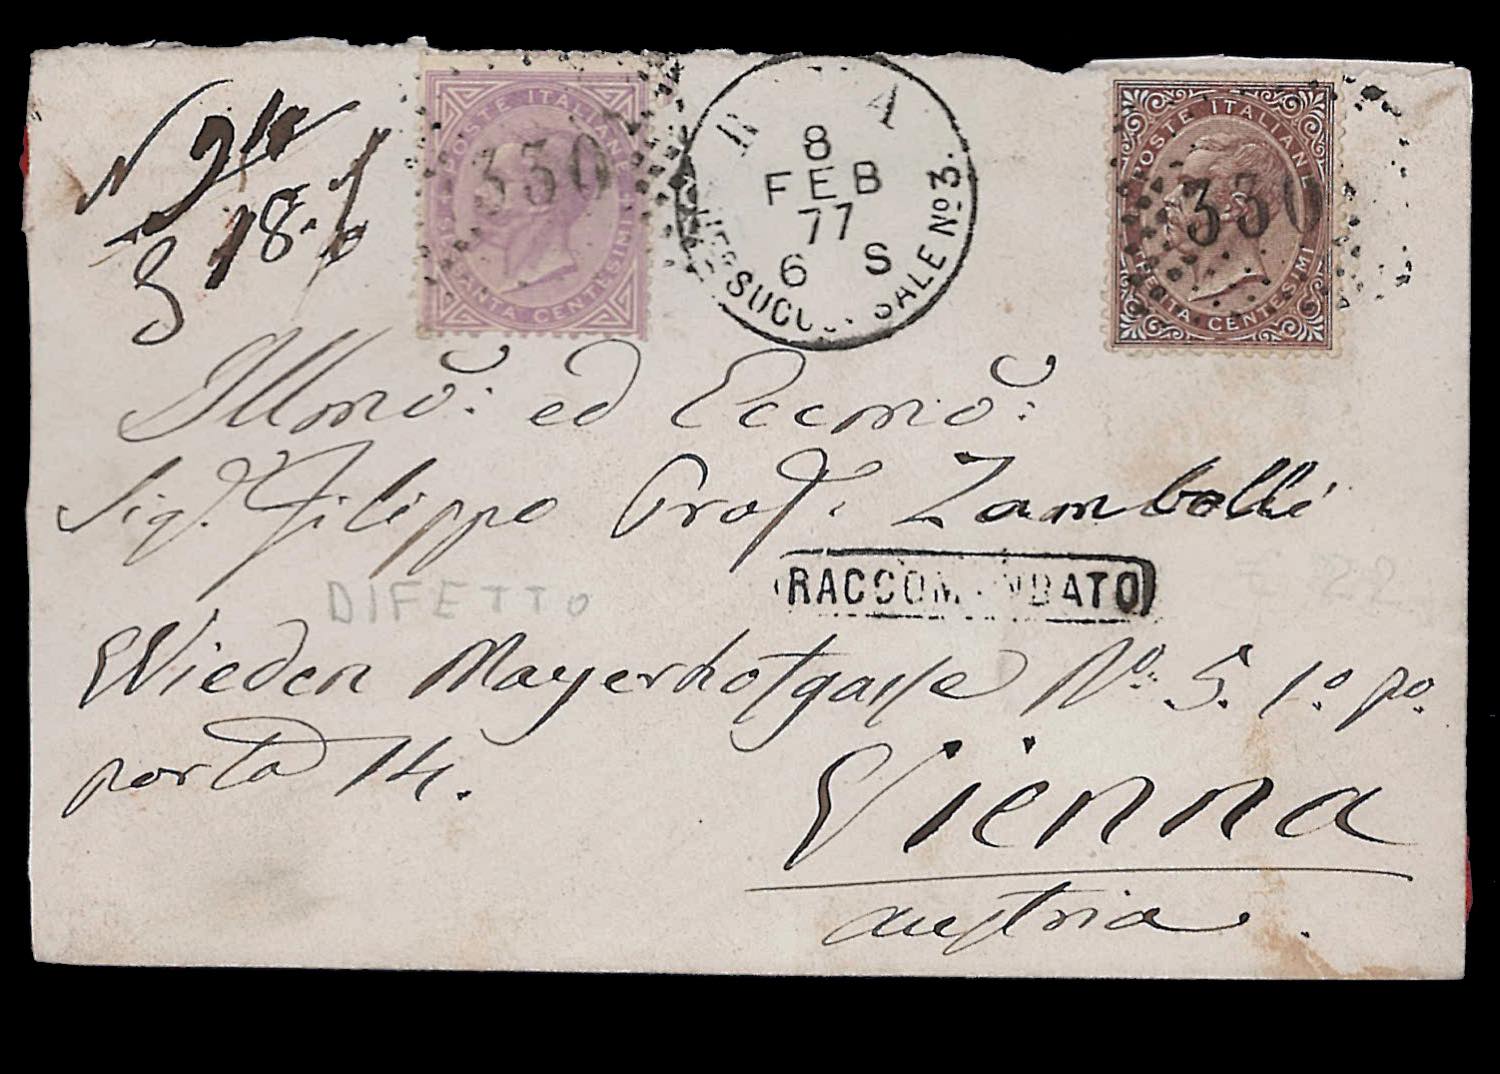 N 94
POSTE ITALIANE
330
CENTESIMI
8
FEB
77
6 S
SUCCURSALE No 3.
POSTE ITALIANE
330
TRENTA CENTESIMI
18.
Illmo: ed Eccmo:
Sigr. Filippo Prof. Zambelli
DIFETTO
RACCOMANDATO
22
Wieden Mayerhofgasse No: 5. 1.o po.
porta 14.
Vienna
Austria.